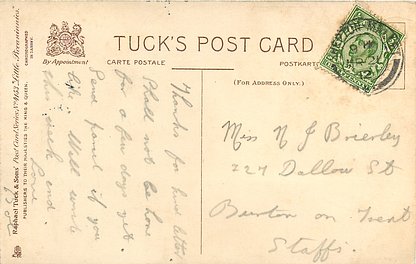 TUCK'S POST CARD
CARTE POSTALE
POSTKARTE
By Appointment
(FOR ADDRESS ONLY.)
Raphael Tuck & Sons' Post Card Series No 9452 "Little Romancies."
PUBLISHERS TO THEIR MAJESTIES THE KING & QUEEN.
CHROMOGRAPHED
Thanks for kind letter
Shall not be home
for a few days yet.
Send parcel if you
like. Will write
this week end.
Love
Miss N J Brierley
227 Dallow St
Burton on Trent
Staffs.